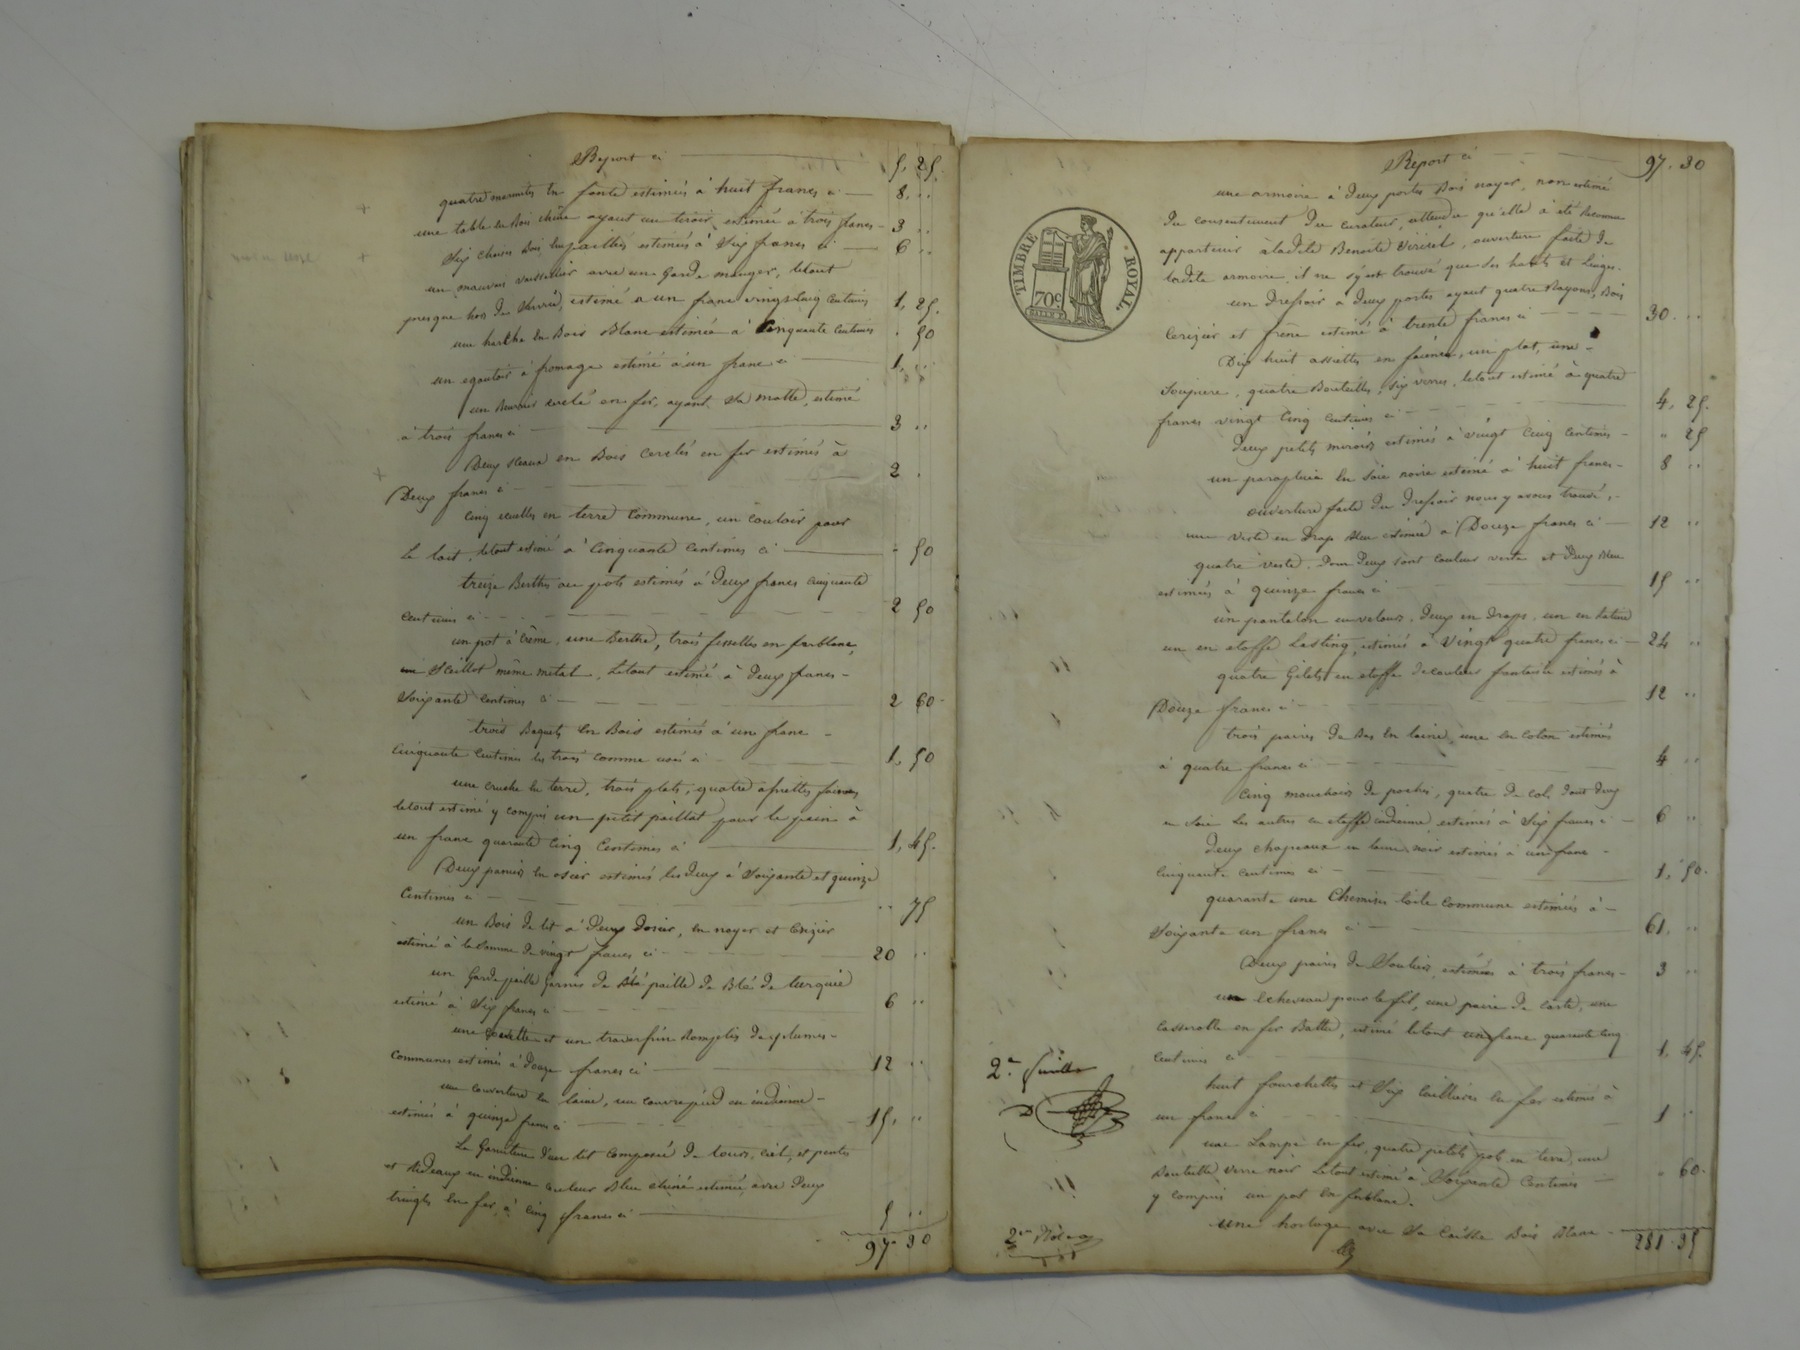 Report ci 5, 25.
quatre marmites en fonte estimées à huit francs ci 8, ..
une table en Bois chêne ayant un tiroir, estimée à trois francs 3 ..
Six chaises Bois, empaillées estimées à Six francs ci 6 ..
un mauvais vaisselier avec un Garde manger, letout
presque hors de Service, estimé a un franc vingt Cinq Centimes 1, 25.
une hache en Bois Blanc estimée à Cinquante Centimes . 50
un egoutoir à fromage estimé à un franc ci 1, ..
un Beurrier cerclé en fer, ayant Sa matte, estimé
à trois francs ci 3 ..
Deux Seaux en Bois Cerclés en fer estimés à
Deux francs ci 2 .
Cinq écuelles en terre Commune, un Couloir pour
Le lait, letout estimé à Cinquante Centimes ci - 50
treize Berthes ou pots estimés à Deux francs Cinquante
Centimes ci 2 50
un pot à Crême, une Berthe, trois fesselles en ferblanc,
un Seillot même métal, Letout estimé à Deux francs
Soixante Centimes ci 2 60
trois Baquets en Bois estimés à un franc
Cinquante Centimes les trois comme uni ci 1, 50
une cruche en terre, trois plats, quatre assiettes faience
letout estimé y compris un petit paillat pour le pain à
un franc quarante Cinq Centimes ci 1, 45.
Deux paniers en osier estimés les Deux à Soixante et quinze
Centimes ci .. 75
un Bois de lit à Deux Dossier, en noyer et Cerizier
estimé à la Somme de vingt francs ci 20 ..
un Garde paille Garnis de paille de Blé de turquie
estimé à Six francs ci 6 ..
une Couette et un traversin Remplis de plumes
Communes estimés à Douze francs ci 12 ..
une couverture en laine, un couvrepied en indienne
estimés à quinze francs ci 15, ..
La Garniture d'un lit Composée de tours, Ciel, et pentes
et Rideaux en indienne couleur Bleu chiné estimée avec Deux
tringles en fer, à Cinq francs ci 5 ..
97. 30
Report ci 97. 30
TIMBRE ROYAL
70c
une armoire à Deux portes Bois noyer, non estimé
Du consentement Du Curateur, attendu qu'elle à été Reconnue
appartenir à ladite Benoite, ouverture faite de
ladite armoire il ne s'y est trouvé que des habits et Linges.
un Dressoir à Deux portes ayant quatre Rayons, Bois
Cerizier et frêne estimé à trente francs ci 30. ..
Dix huit assiettes en faience, un plat, une
Soupiere, quatre Bouteilles, Six verres, letout estimé à quatre
francs vingt Cinq Centimes ci 4, 25.
Deux petits miroirs estimés à vingt Cinq Centimes " 25
un parapluie en Soie noire estimé à huit francs 8 ..
ouverture faite du Dressoir nous y avons trouvé,
une Veste en Drap Bleu estimée à Douze francs ci 12 ..
quatre veste. Dont Deux sont couleur verte et Deux Bleu
estimées à quinze francs ci 15 ..
un pantalon en velours, Deux en Draps, un en
un en etoffe Lasting, estimés à Vingt quatre francs ci 24 ..
quatre Gilets en etoffe de couleur fantaisie estimés à
Douze francs ci 12 ..
trois paires de Bas en laine, une en Coton estimés
à quatre francs ci 4 ..
Cinq mouchoirs de poches, quatre de col, dont Deux
en Soie Les autres en etoffe indienne, estimés à Six francs ci 6 ..
Deux chapeaux en laine noir estimés à un franc
Cinquante Centimes ci 1, 50.
quarante une Chemises toile Commune estimées à
Soixante un francs ci 61. ..
Deux paires de Souliers, estimées à trois francs 3 ..
un Echeveau pour le fil, une paire de carte, une
Casserolle en fer Battu, estimé letout un franc quarante Cinq
Centimes ci 1, 45.
2e feuille
huit fourchettes et Six Cuillieres en fer estimés à
un franc ci 1 ..
une Lampe en fer, quatre petits pots en terre, une
Bouteille verre noir Letout estimé à Soixante Centimes " 60.
y Compris un pot en ferblanc.
2em Rôle
une horloge avec Sa Caisse Bois Blanc
281. 35